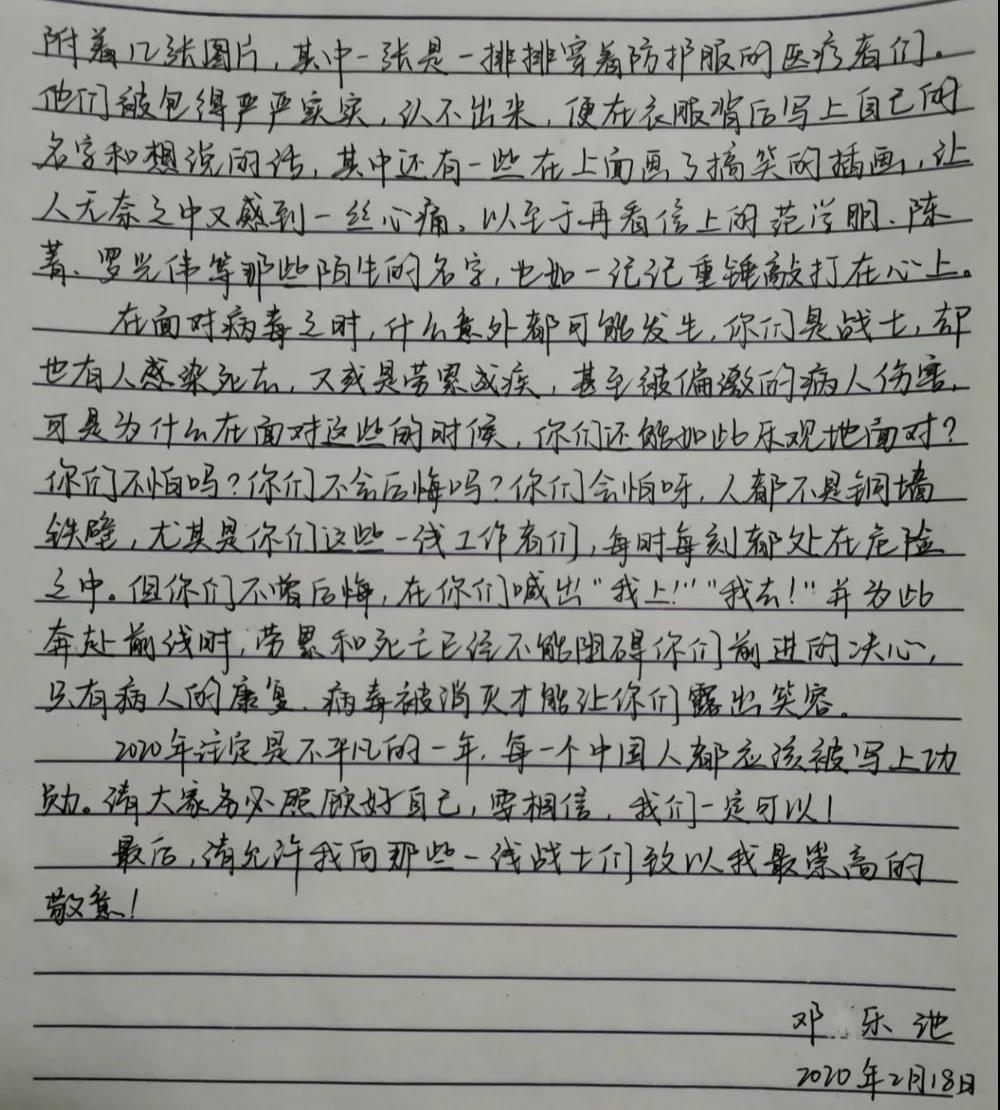 附着几张图片，其中一张是一排排穿着防护服的医疗者们。
他们被包得严严实实，认不出来，便在衣服背后写上自己的
名字和想说的话，其中还有一些在上面画了搞笑的插画，让
人无奈之中又感到一丝心痛。以至于再看信上的范学朋、陈
菁、罗光伟等那些陌生的名字，也如一记记重锤敲打在心上。
在面对病毒之时，什么意外都可能发生，你们是战士，却
也有人感染死去，又或是劳累成疾，甚至被偏激的病人伤害，
可是为什么在面对这些的时候，你们还能如此乐观地面对？
你们不怕吗？你们不会后悔吗？你们会怕呀，人都不是铜墙
铁壁，尤其是你们这些一线工作者们，每时每刻都处在危险
之中。但你们不曾后悔，在你们喊出“我上！”“我去！”并为此
奔赴前线时，劳累和死亡已经不能阻碍你们前进的决心，
只有病人的康复、病毒被消灭才能让你们露出笑容。
2020年注定是不平凡的一年，每一个中国人都应该被写上功
勋。请大家务必照顾好自己，要相信，我们一定可以！
最后，请允许我向那些一线战士们致以我最崇高的
敬意！
邓 乐池
2020年2月18日